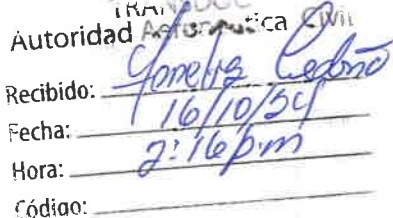 TRANSDOC
Autoridad Aeronautica Civil
Recibido: Yonelis Cedeño
Fecha: 16/10/24
Hora: 2:16 p.m
Código: